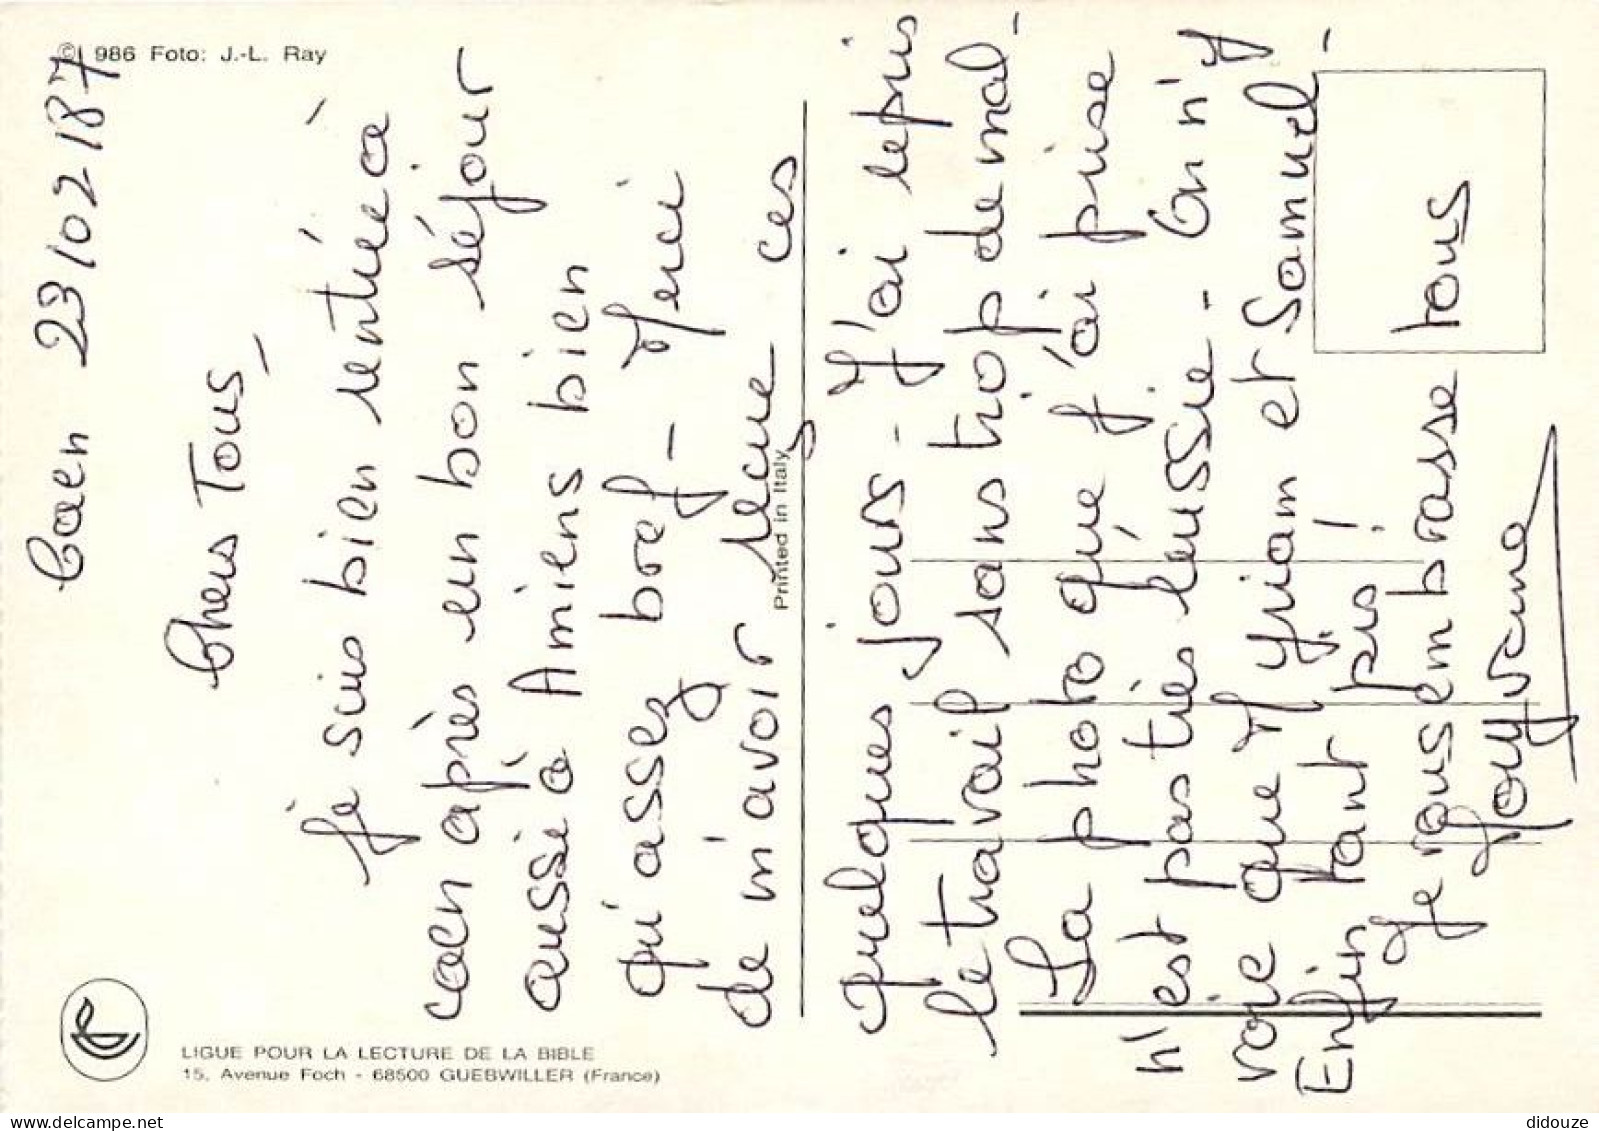 © 1986 Foto: J.-L. Ray
Caen 23/02/87
Chers Tous,
Je suis bien rentrée à
Caen après un bon séjour
aussi à Amiens bien
qu'assez bref - Merci
de m'avoir reçue ces
quelques jours - J'ai repris
le travail sans trop de mal -
La photo que j'ai prise
n'est pas très réussie - On n'y
voie que Myriam et Samuel -
Enfin tant pis !
Je vous embrasse tous
LIGUE POUR LA LECTURE DE LA BIBLE
15, Avenue Foch - 68500 GUEBWILLER (France)
Printed in Italy
didouze